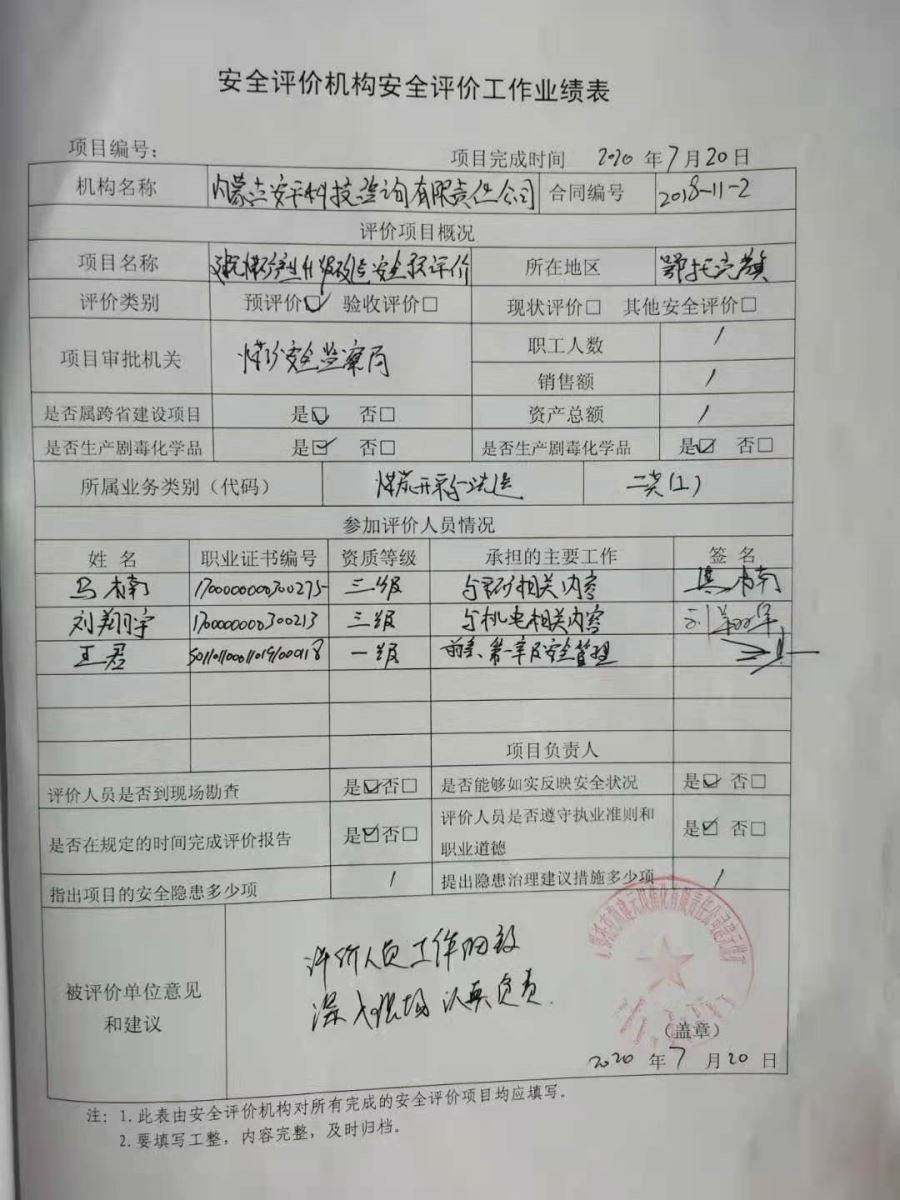 安全评价机构安全评价工作业绩表
项目编号： 项目完成时间 2020 年 7 月 20 日
机构名称 内蒙古安平科技咨询有限责任公司 合同编号 2018-11-2
评价项目概况
项目名称 建元煤矿产业升级改造安全预评价 所在地区 鄂托克旗
评价类别 预评价☑ 验收评价□ 现状评价□ 其他安全评价□
项目审批机关 煤矿安全监察局 职工人数 /
销售额 /
是否属跨省建设项目 是☑ 否□ 资产总额 /
是否生产剧毒化学品 是☑ 否□ 是否生产剧毒化学品 是☑ 否□
所属业务类别（代码） 煤炭开采与洗选 二类(1)
参加评价人员情况
姓 名 职业证书编号 资质等级 承担的主要工作 签 名
马楠 1700000000300275 三级 与采矿相关内容 马楠
刘翔宇 1700000000300213 三级 与机电相关内容
王君 一级 前言、第一章及安全管理
项目负责人
评价人员是否到现场勘查 是☑否□ 是否能够如实反映安全状况 是☑ 否□
是否在规定的时间完成评价报告 是☑否□ 评价人员是否遵守执业准则和
职业道德 是☑ 否□
指出项目的安全隐患多少项 / 提出隐患治理建议措施多少项 /
被评价单位意见
和建议
评价人员工作细致
深入现场 认真负责.
（盖章）
2020 年 7 月 20 日
注：1.此表由安全评价机构对所有完成的安全评价项目均应填写。
2.要填写工整，内容完整，及时归档。